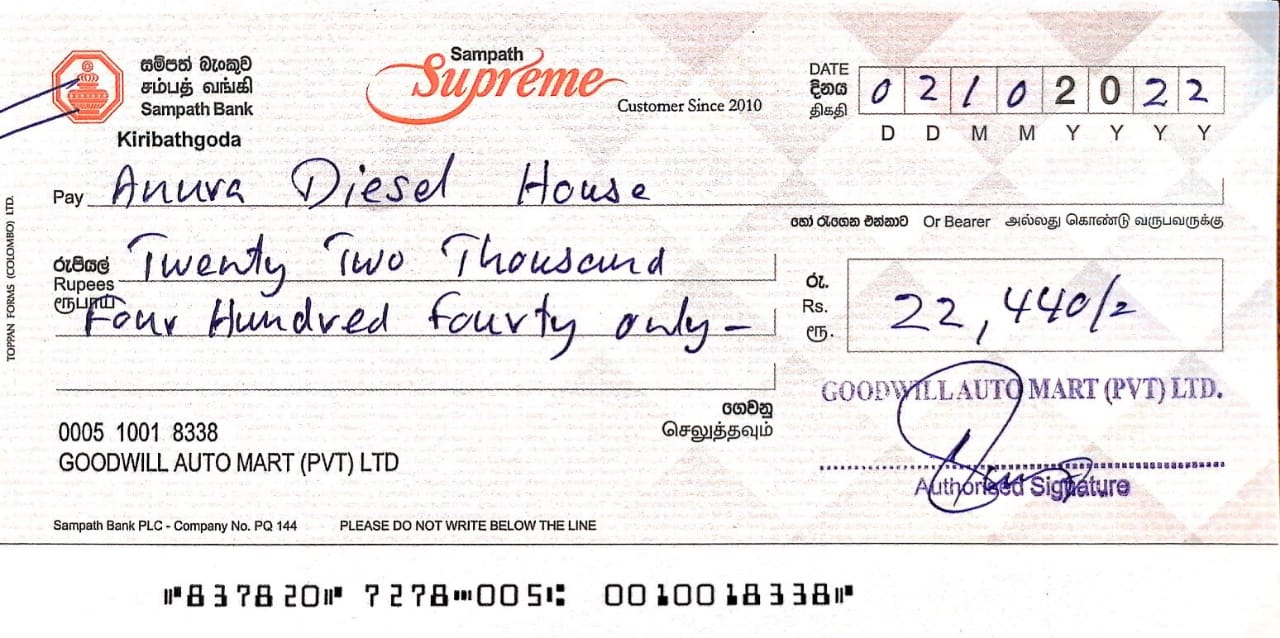 සම්පත් බැංකුව
சம்பத் வங்கி
Sampath Bank
Kiribathgoda
Sampath
Supreme
Customer Since 2010
DATE
දිනය
திகதி
0 2 1 0 2 0 2 2
D D M M Y Y Y Y
Pay Anura Diesel House
හෝ රැගෙන එන්නාට Or Bearer அல்லது கொண்டு வருபவருக்கு
රුපියල් Twenty Two Thousand
Rupees
ரூபாய் Four Hundred Fourty only –
රු.
Rs. 22,440/=
ரூ.
GOODWILL AUTO MART (PVT) LTD.
ගෙවනු
செலுத்தவும்
0005 1001 8338
GOODWILL AUTO MART (PVT) LTD
Authorised Signature
Sampath Bank PLC - Company No. PQ 144 PLEASE DO NOT WRITE BELOW THE LINE
TOPPAN FORMS (COLOMBO) LTD.
⑈837820⑈ 7278⑉005⑆ 0010018338⑈